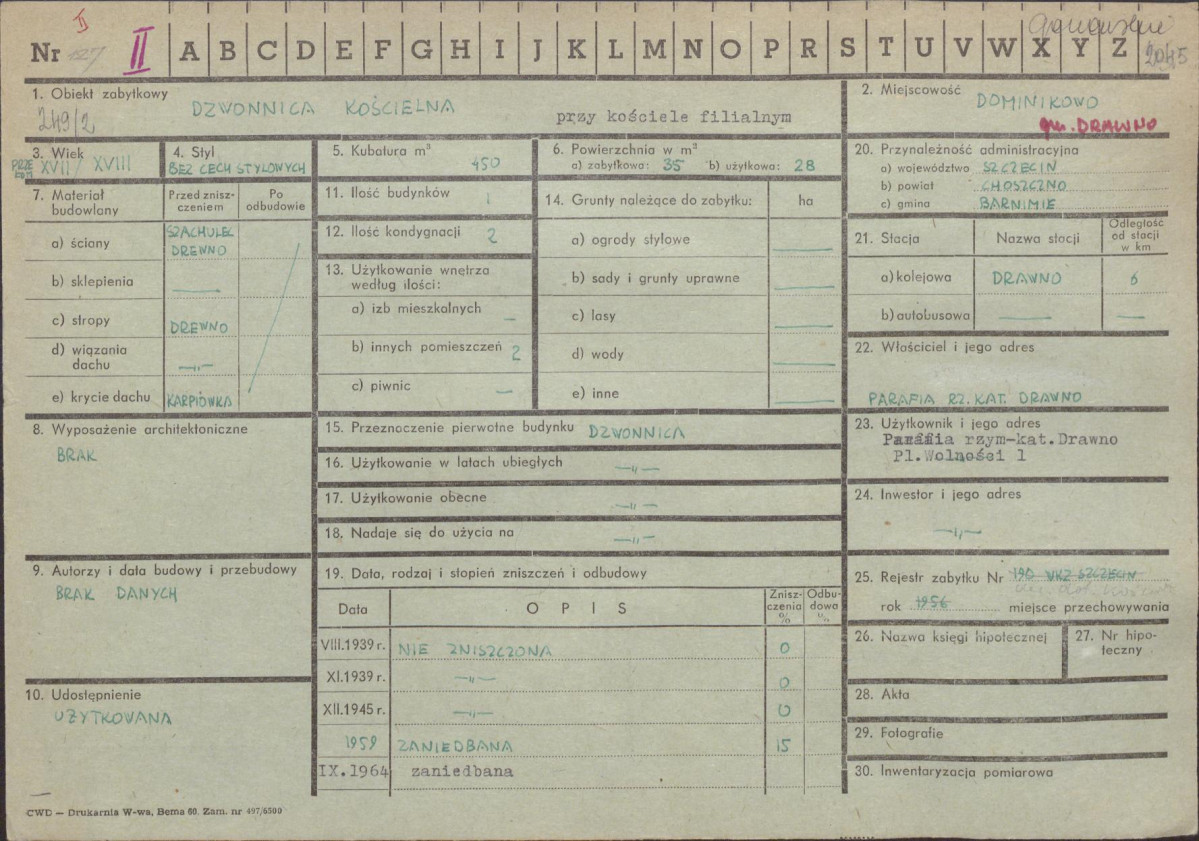 II
Nr II A B C D E F G H I J K L M N O P R S T U V W X Y Z
1. Obiekt zabytkowy
DZWONNICA KOŚCIELNA
przy kościele filialnym
249/2
2. Miejscowość
DOMINIKOWO
gm. DRAWNO
3. Wiek
XVII/XVIII
4. Styl
BEZ CECH STYLOWYCH
5. Kubatura m³
450
6. Powierzchnia w m³
a) zabytkowa: 35 b) użytkowa: 28
20. Przynależność administracyjna
a) województwo SZCZECIN
b) powiat CHOSZCZNO
c) gmina BARNIMIE
7. Materiał budowlany
Przed znisz-
czeniem
Po
odbudowie
a) ściany
SZACHULEC
DREWNO
b) sklepienia —
c) stropy DREWNO
d) wiązania
dachu —„—
e) krycie dachu KARPIÓWKA
11. Ilość budynków 1
12. Ilość kondygnacji 2
13. Użytkowanie wnętrza
według ilości:
a) izb mieszkalnych —
b) innych pomieszczeń 2
c) piwnic —
14. Grunty należące do zabytku: ha
a) ogrody stylowe —
b) sady i grunty uprawne —
c) lasy —
d) wody —
e) inne —
21. Stacja
Nazwa stacji
Odległość
od stacji
w km
a) kolejowa DRAWNO 6
b) autobusowa — —
22. Właściciel i jego adres
PARAFIA RZ. KAT. DRAWNO
8. Wyposażenie architektoniczne
BRAK
15. Przeznoczenie pierwotne budynku DZWONNICA
16. Użytkowanie w latach ubiegłych —„—
17. Użytkowanie obecne —„—
18. Nadaje się do użycia na —„—
23. Użytkownik i jego adres
Parafia rzym-kat.Drawno
Pl.Wolności 1
24. Inwestor i jego adres
—„—
9. Autorzy i data budowy i przebudowy
BRAK DANYCH
10. Udostępnienie
UŻYTKOWANA
19. Data, rodzaj i stopień zniszczeń i odbudowy
Data
OPIS
Znisz-
czenia
%
Odbu-
dowa
%
VIII.1939 r. NIE ZNISZCZONA 0
XI.1939 r. —„— 0
XII.1945 r. —„— 0
1959 ZANIEDBANA 15
IX.1964 zaniedbana
25. Rejestr zabytku Nr 190 WKZ SZCZECIN
rok 1956 miejsce przechowywania
26. Nazwa księgi hipotecznej
27. Nr hipo-
teczny
28. Akta
29. Fotografie
30. Inwentaryzacja pomiarowa
CWD — Drukarnia W-wa, Bema 60. Zam. nr 497/6500